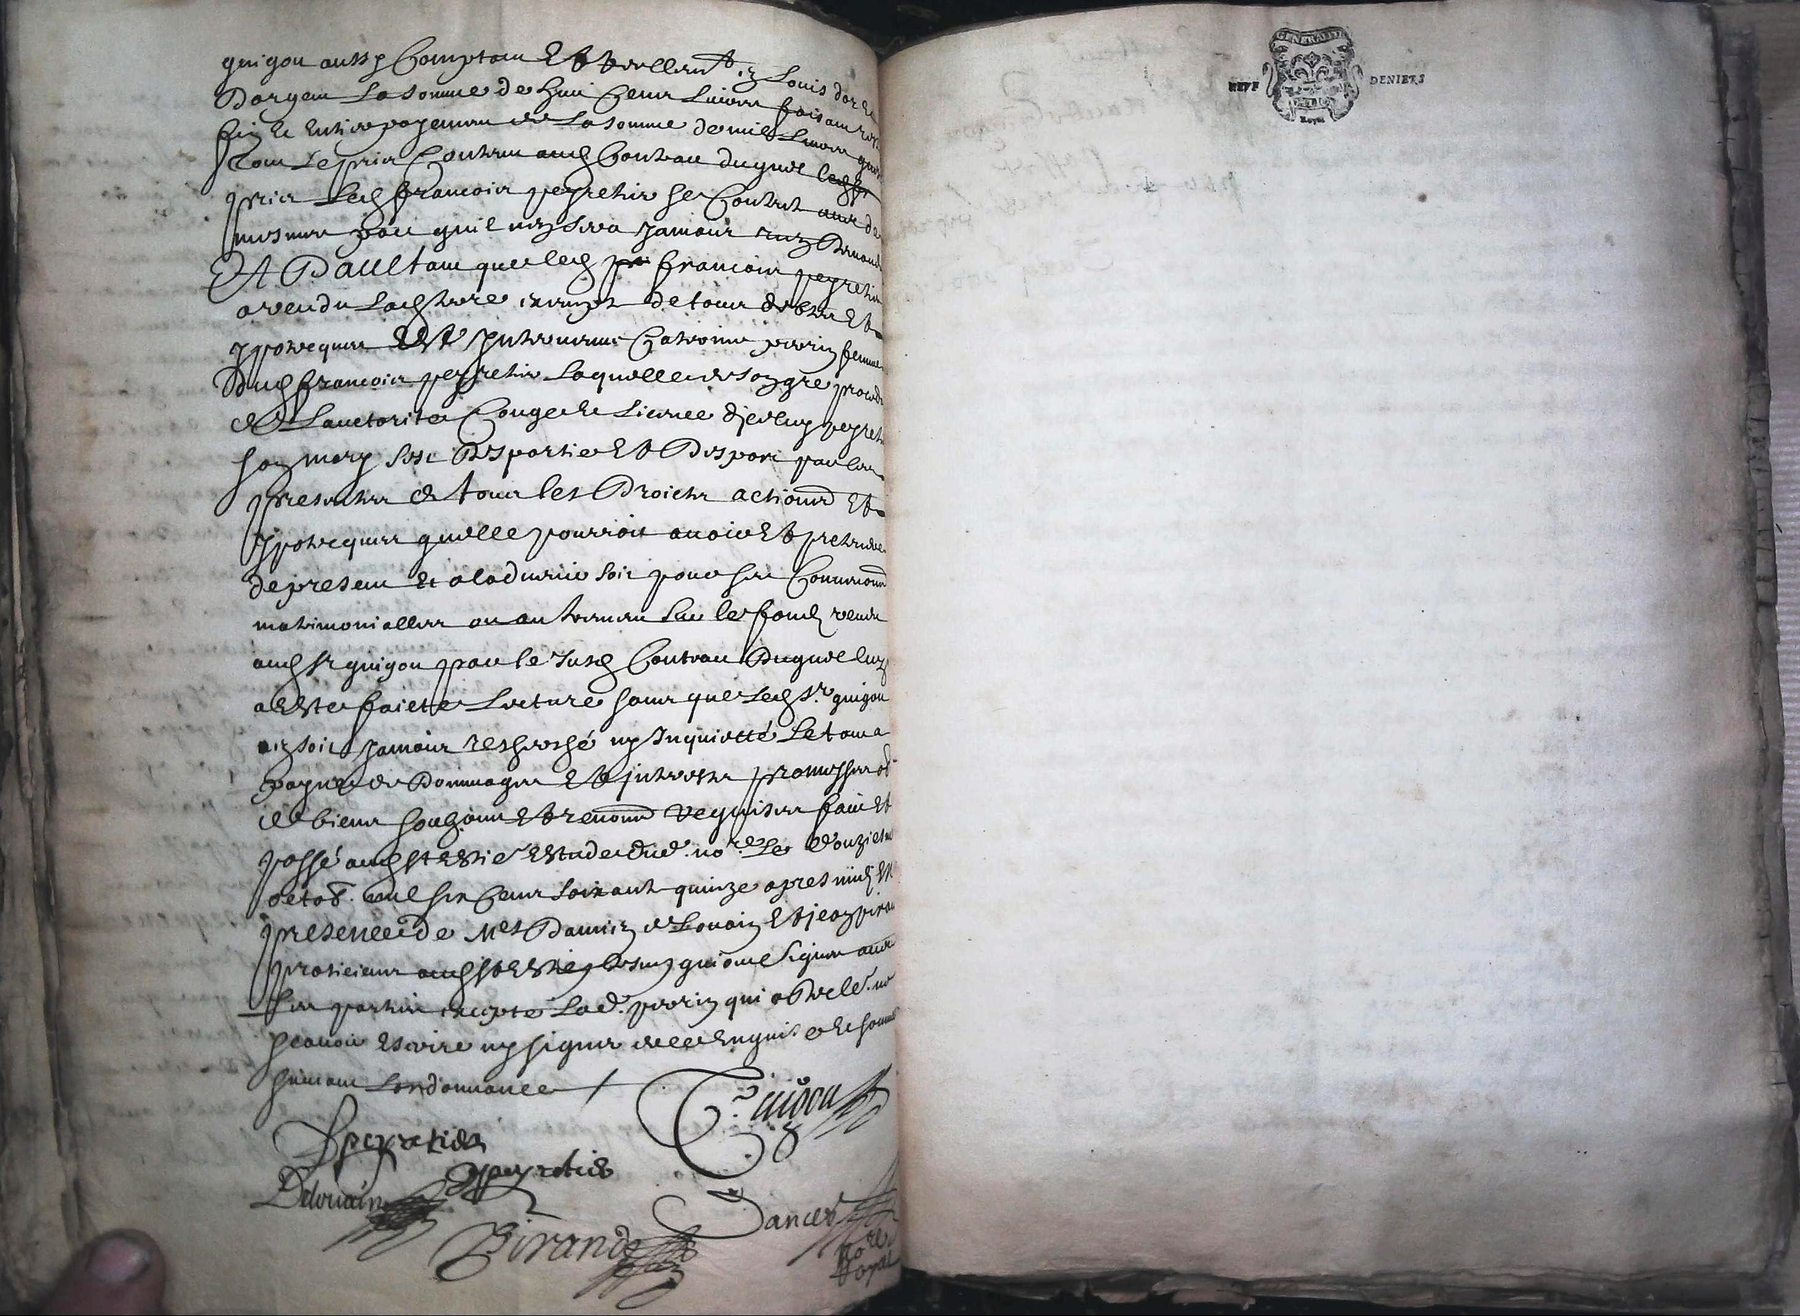 guigou aussy Comptan Et Reellemt. en Louis dor et
Dargen La somme de huic Cens Livres faisant
fin Et Entier payemen de La somme de mil Livres
Pour Le prix Contenu aud Contrau duquel
prix Led francois peyretier se Contente avec
mesmere pacte quil nen sera Jamais rien Demande
Et Daultant que led francois peyretier
a vendu Lad terre exempte de tous debtes Et
ypotecques Est Intervenue Catherine perrin femme
Dud francois peyretier Laquelle de son gre procedan
de Lauctorite Conge et Licence dicelluy peyretier
son mary sest Despartie Et Despart par les
presentes de tous les Droicts actions Et
ypotecques quelle pourroit avoir Et pretendre
de present Et a ladvenir soit pour ses Conventions
matrimonialles ou autremen sur le fonds vendu
aud sr guigou par le susd Contrau Duquel luy
a Este faicte Lecture sans que Led sr. guigou
en soit Jamais recherché ny Inquietté Le tout a
payne de Dommages Et Interests promesses ob
de biens soubzons Et renons Requises faict Et
passé aud st Estie Estude dud. nore Le Douziesme
octob. mil six Cens soixante quinze apres midy En
presence de Mes Damien de Lovain Et Jean Viran
praticiens aud st Estie soubsnes qui ont Signes avec
les parties excepte Lad. perrin qui a Decle. ne
scavoir Escrire ny signer de ce Enquise et sommee
suivant Lordonnance
Guigou
Fpeyretier
Ypeyretier
Ddlovain
Dancer
Birande
nore
Royal
GENERALITE
NEUF DENIERS